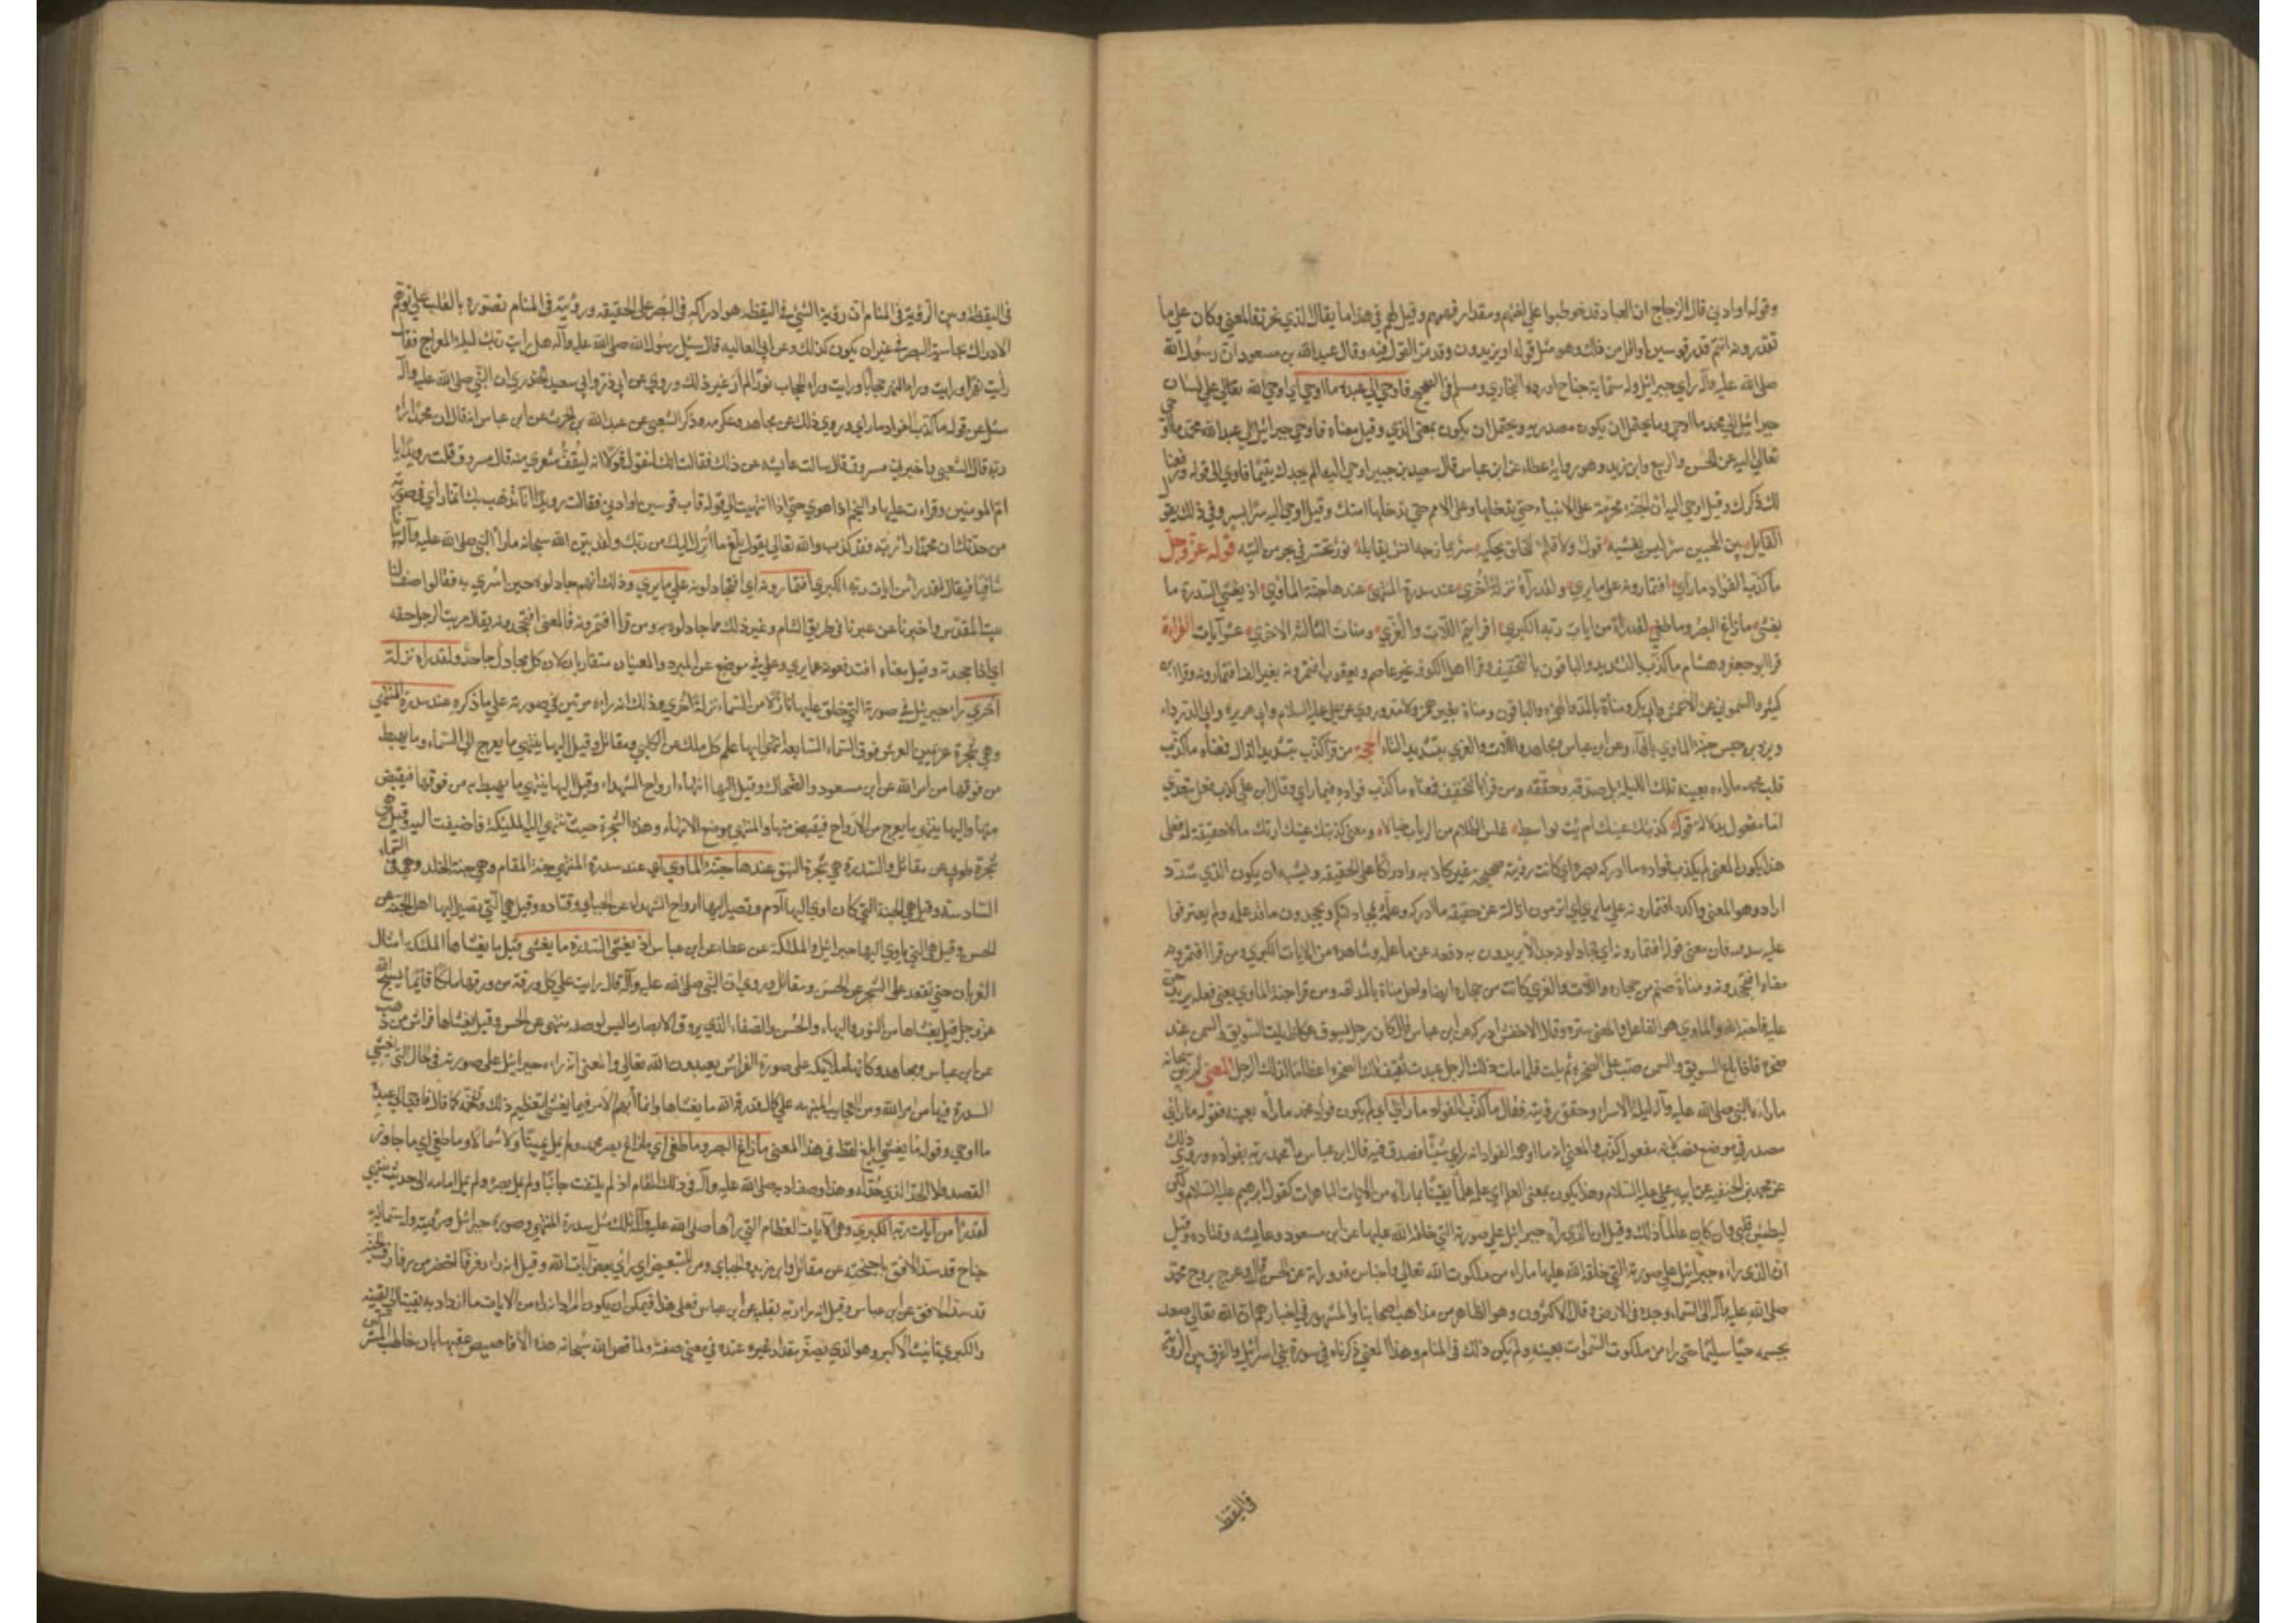 وقوله او ادنى قال الزجاج ان العباد قد خوطبوا على لغتهم ومقدار فهمهم وقيل لهم في هذا ما يقال للذي يحزر فالمعنى وكان على ما
تقدرونه انتم قدر قوسين او اقل من ذلك وهو مثل قوله او يزيدون وقد مر القول فيه وقال عبد الله بن مسعود ان رسول الله
صلى الله عليه وآله راى جبرائيل وله ستماية جناح اورده البخاري ومسلم في الصحيح فاوحى الى عبده ما اوحى اي اوحى الله تعالى على لسان
جبرائيل الى محمد ما اوحى وما يحتمل ان يكون مصدرية ويحتمل ان يكون بمعنى الذي وقيل معناه فاوحى جبرائيل الى عبد الله محمد ما اوحى
تعالى اليه عن الحسن والربيع وابن زيد وهو رواية عطاء عن ابن عباس قال سعيد بن جبير اوحى اليه الم يجدك يتيما فاوى الى قوله ورفعنا
لك ذكرك وقيل اوحى اليه ان الجنة محرمة على الانبياء حتى تدخلها وعلى الامم حتى تدخلها امتك وقيل اوحى اليه سرا بسر وفي ذلك يقول
القايل بين المحبين سر ليس يفشيه قول ولا قلم للخلق يحكيه سر يمازجه انس يقابله نور تحير في بحر من التيه قوله عز وجل
ما كذب الفؤاد ما راى افتمارونه على ما يرى ولقد رآه نزلة اخرى عند سدرة المنتهى عندها جنة الماوى اذ يغشى السدرة ما
يغشى ما زاغ البصر وما طغى لقد راى من ايات ربه الكبرى افرايتم اللات والعزى ومنات الثالثة الاخرى عشر آيات القراءة
قرا ابو جعفر وهشام ما كذب بالتشديد والباقون بالتخفيف وقرا اهل الكوفة غير عاصم ويعقوب افتمرونه بغير الف افتمارونه وقرا ابن
كثير والشموني عن الاعمش وابي بكر ومناة بالمد والهمزة والباقون ومناة بغير همز ولا مد وروي عن علي عليه السلام وابي هريرة وابي الدرداء
وزر بن حبيش جنة الماوى بالهاء وعن ابن عباس ومجاهد واللات والعزى بتشديد التاء الحجة من قرا كذب بتشديد الذال فمعناه ما كذب
قلب محمد ما رآه بعينه تلك الليلة بل صدقه وحققه ومن قرا بالتخفيف فمعناه ما كذب فؤاده فيما راى وقال ابو علي كذب فعل يتعدى
الى مفعول بدلالة قوله كذبتك عينك ام رايت بواسط غلس الظلام من الرباب خيالا ومعنى كذبتك عينك ارتك ما لا حقيقة له فعلى
هذا يكون المعنى لم يكذب فؤاده ما ادركه بصره اي كانت رؤيته صحيحة غير كاذبة وادراكا على الحقيقة ويشبه ان يكون الذي شدد
اراد هو المعنى واكده افتمارونه على ما يرى اي اترومون ازالته عن حقيقة ما ادركه وعلمه بمجادلتكم وتجحدون ما قد علمه ولم يعترفوا
مصدر في موضع نصب لانه مفعول كذب والمعنى انه ما اوهمه الفؤاد انه راى شيئا فصدق فيه قال ابن عباس راى محمد ربه بفؤاده وروي ذلك
عن محمد بن الحنفية عن ابيه علي عليه السلام وهذا يكون بمعنى العلم اي علمه علما يقينا بما رآه من الايات الباهرات كقول ابرهيم عليه السلام ولكن
ليطمئن قلبي وان كان عالما ذلك وقيل ان الذي رآه جبرائيل على صورته التي خلقه الله عليها عن ابن مسعود وعايشه وقتاده وقيل
ان الذي رآه جبرائيل على صورته التي خلقه الله عليها ما رآه من ملكوت الله تعالى واجناس مقدوراته عن الحسن قال وعرج بروح محمد
صلى الله عليه وآله الى السماء وجسده في الارض وقال الاكثرون وهو الظاهر من مذاهب اصحابنا والمشهور في اخبارهم ان الله تعالى صعد
بجسمه حيا سليما حتى راى من ملكوت السموات بعينه ولم يكن ذلك في المنام وهذا المعنى ذكرناه في سورة بني اسرائيل والفرق بين الرؤية
في اليقظه
في اليقظة وبين الرؤية في المنام ان رؤية الشيء في اليقظه هو ادراكه في البصر على الحقيقه ورؤيته في المنام تصوره بالقلب على توهم
الادراك بحاسة البصر من غير ان يكون كذلك وعن ابي العاليه قال سئل رسول الله صلى الله عليه وآله هل رايت ربك ليلة المعراج فقال
رأيت نهرا ورايت وراء النهر حجابا ورايت وراء الحجاب نورا لم ار غير ذلك وروي عن ابي ذر وابي سعيد الخدري ان النبي صلى الله عليه وآله
سئل عن قوله ما كذب الفؤاد ما راى وروي ذلك عن مجاهد وعكرمه وذكر الشعبي عن عبد الله بن الحرث عن ابن عباس انه قال ان محمدا راى
ربه قال الشعبي واخبرني مسروق قال سالت عايشه عن ذلك فقالت انك لتقول قولا انه ليقف شعري منه قال مسروق قلت رويدا يا
ام المومنين وقرات عليها والنجم اذا هوى حتى اذا انتهيت الى قوله قاب قوسين او ادنى فقالت رويدا انى يذهب بك انما راى في صورته
من حدثك ان محمدا راى ربه فقد كذب والله تعالى يقول بلغ ما انزل اليك من ربك ولقد بين الله سبحانه ما راه النبي صلى الله عليه وآله بيانا
شافيا فقال لقد راى من ايات ربه الكبرى افتمارونه اي افتجادلونه على ما يرى وذلك انهم جادلوه حين اسري به فقالوا صف لنا
بيت المقدس واخبرنا عن عيرنا في طريق الشام وغير ذلك مما جادلوه به ومن قرا افتمرونه فالمعنى افتجحدونه يقال مريت الرجل حقه
اي اذا جحدته وقيل معناه افتدفعونه عما يرى وعلى في موضع عن عن المبرد والمعنيان متقاربان لان كل مجادل جاحد ولقد راه نزلة
اخرى راى جبرئيل في صورته التي خلق عليها نازلا من السماء نزلة اخرى وذلك انه راه مرتين في صورته على ما ذكره عند سدرة المنتهى
وهي شجرة عن يمين العرش فوق السماء السابعة انتهى اليها علم كل ملك عن الكلبي ومقاتل وقيل اليها ينتهي ما يعرج الى السماء وما يهبط
من فوقها من امر الله عن ابن مسعود والضحاك وقيل اليها انتهاء ارواح الشهداء وقيل اليها ينتهي ما يهبط به من فوقها فيقبض
منها واليها ينتهي ما يعرج من الارواح فيقبض منها والمنتهى موضع الانتهاء وهذه الشجرة حيث تنتهي اليه الملئكة فاضيفت اليه وقيل هي
شجرة طوبى عن مقاتل والسدرة هي شجرة النبق عندها جنة الماوى اي عند سدرة المنتهى جنة المقام وهي جنة الخلد وهي في السماء
السادسة وقيل هي الجنة التي كان اوى اليها آدم وتصير اليها ارواح الشهداء عن الجبائي وقتاده وقيل هي التي تصير اليها اهل الجنة عن
الحسن وقيل هي التي ياوي اليها جبرائيل والملئكة عن عطاء عن ابن عباس اذ يغشى السدرة ما يغشى وقيل ما يغشاها الملئكة امثال
الغربان حتى تقعد على الشجر عن الحسن ومقاتل وروي ان النبي صلى الله عليه وآله قال رايت على كل ورقة من ورقها ملكا قايما يسبح الله
عز وجل وقيل يغشاها من النور والبهاء والحسن والصفاء الذي يروق الابصار ما ليس لوصفه منتهى عن الحسن وقيل يغشاها فراش من ذهب
عن ابن عباس ومجاهد وكانها ملايكة على صورة الفراش يعبدون الله تعالى والمعنى انه راى جبرائيل على صورته في الحال التي يغشى
السدرة فيها من امر الله ومن العجايب المنبهة على كمال قدرة الله ما يغشاها وانما ابهم الامر فيما يغشى لتعظيم ذلك وتفخيمه كما قال فاوحى الى عبده
ما اوحى وقوله ما يغشى ابلغ لفظ في هذا المعنى ما زاغ البصر وما طغى اي ما زاغ بصر محمد ولم يمل يمينا ولا شمالا وما طغى اي ما جاوز
القصد ولا الحد الذي حدد له وهذا وصف ادبه صلى الله عليه وآله في ذلك المقام اذ لم يلتفت جانبا ولم يمل بصره ولم يمده امامه الى حيث ينتهي
لقد راى من آيات ربه الكبرى وهي الآيات العظام التي رآها صلى الله عليه وآله تلك الليلة مثل سدرة المنتهى وصورة جبرائيل ورؤيته وله ستماية
جناح قد سد الافق باجنحته عن مقاتل وابن زيد والجبائي ومن للتبعيض اي راى بعض ايات الله وقيل انه راى رفرفا اخضر من رفارف الجنة
قد سد الافق عن ابن عباس وقيل انه راى ربه بقلبه عن ابن عباس فعلى هذا فيمكن ان يكون المراد انه راى من الايات ما ازداد به يقينا الى يقينه
والكبرى تانيث الاكبر وهو الذي يصغر مقدار غيره عنده في معنى صفته ولما قص الله سبحانه هذه الاقاصيص عقبها بان خاطب المشركين